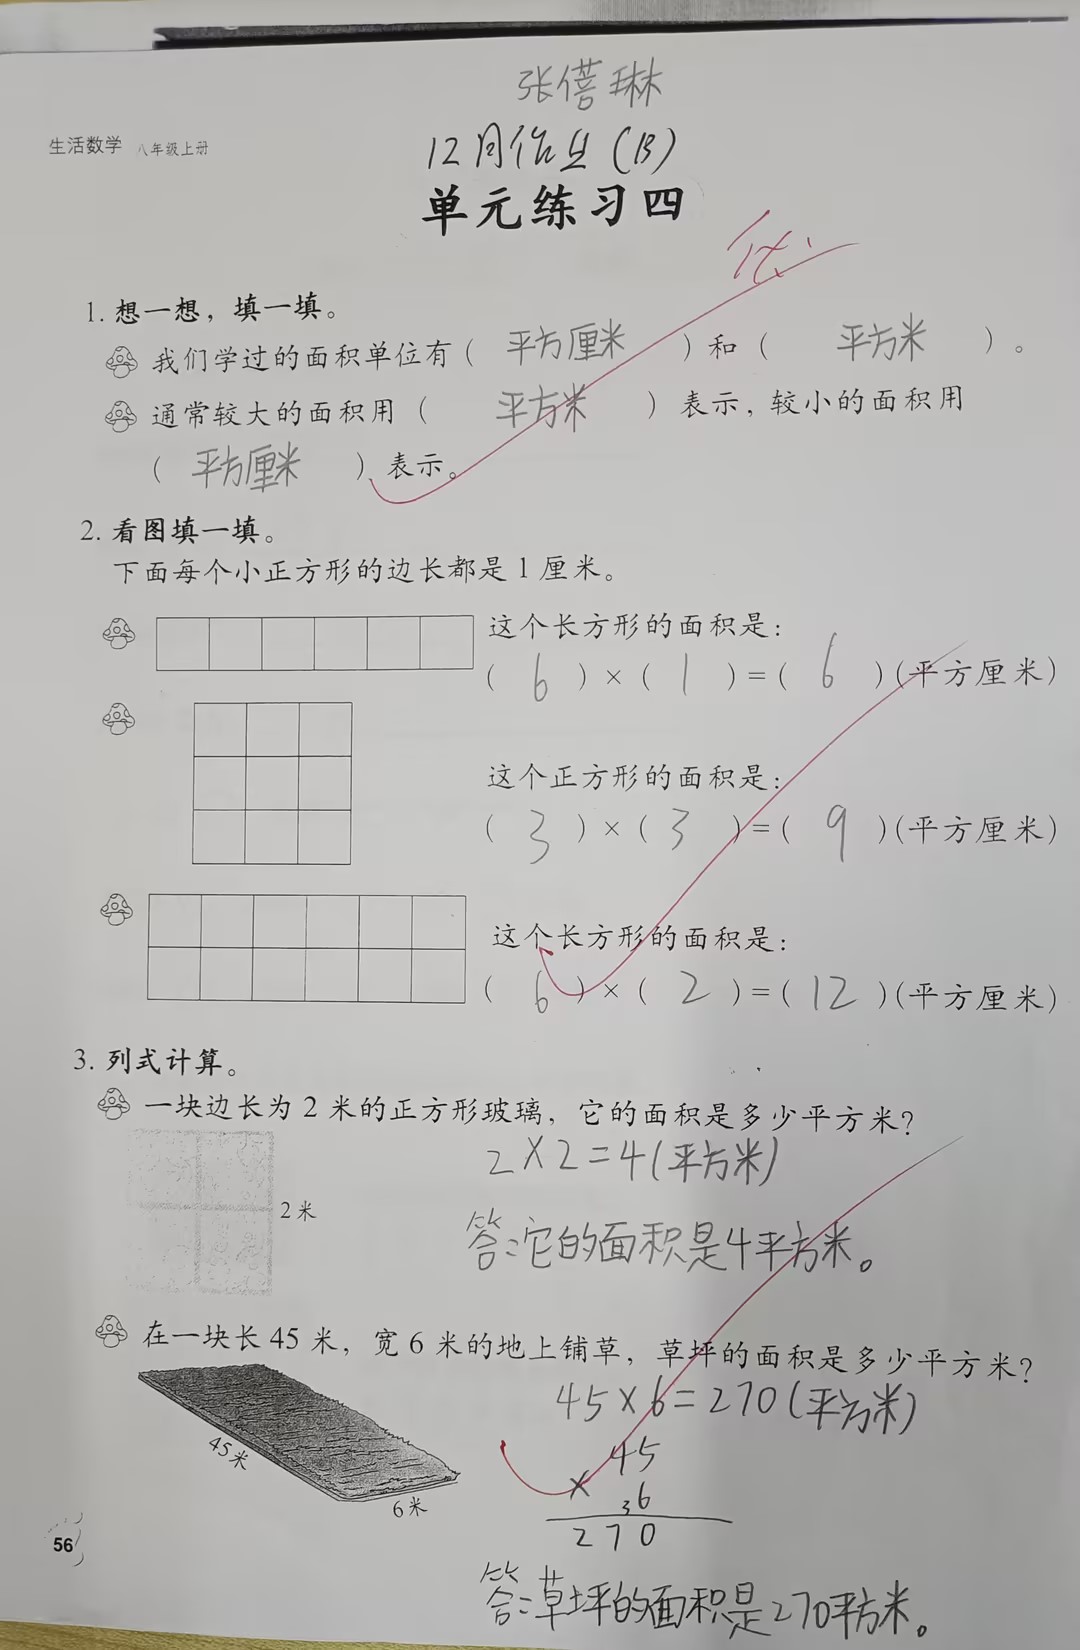 张蓓琳
生活数学 八年级上册
12月作业(B)
单元练习四
优
1. 想一想，填一填。
我们学过的面积单位有（ 平方厘米 ）和（ 平方米 ）。
通常较大的面积用（ 平方米 ）表示，较小的面积用
（ 平方厘米 ）表示。
2. 看图填一填。
下面每个小正方形的边长都是1厘米。
这个长方形的面积是：
（ 6 ）×（ 1 ）=（ 6 ）(平方厘米)
这个正方形的面积是：
（ 3 ）×（ 3 ）=（ 9 ）(平方厘米)
这个长方形的面积是：
（ 6 ）×（ 2 ）=（ 12 ）(平方厘米)
3. 列式计算。
一块边长为2米的正方形玻璃，它的面积是多少平方米？
2×2=4(平方米)
2米
答：它的面积是4平方米。
在一块长45米，宽6米的地上铺草，草坪的面积是多少平方米？
45×6=270(平方米)
45米
6米
45
× 36
270
56
答：草坪的面积是270平方米。